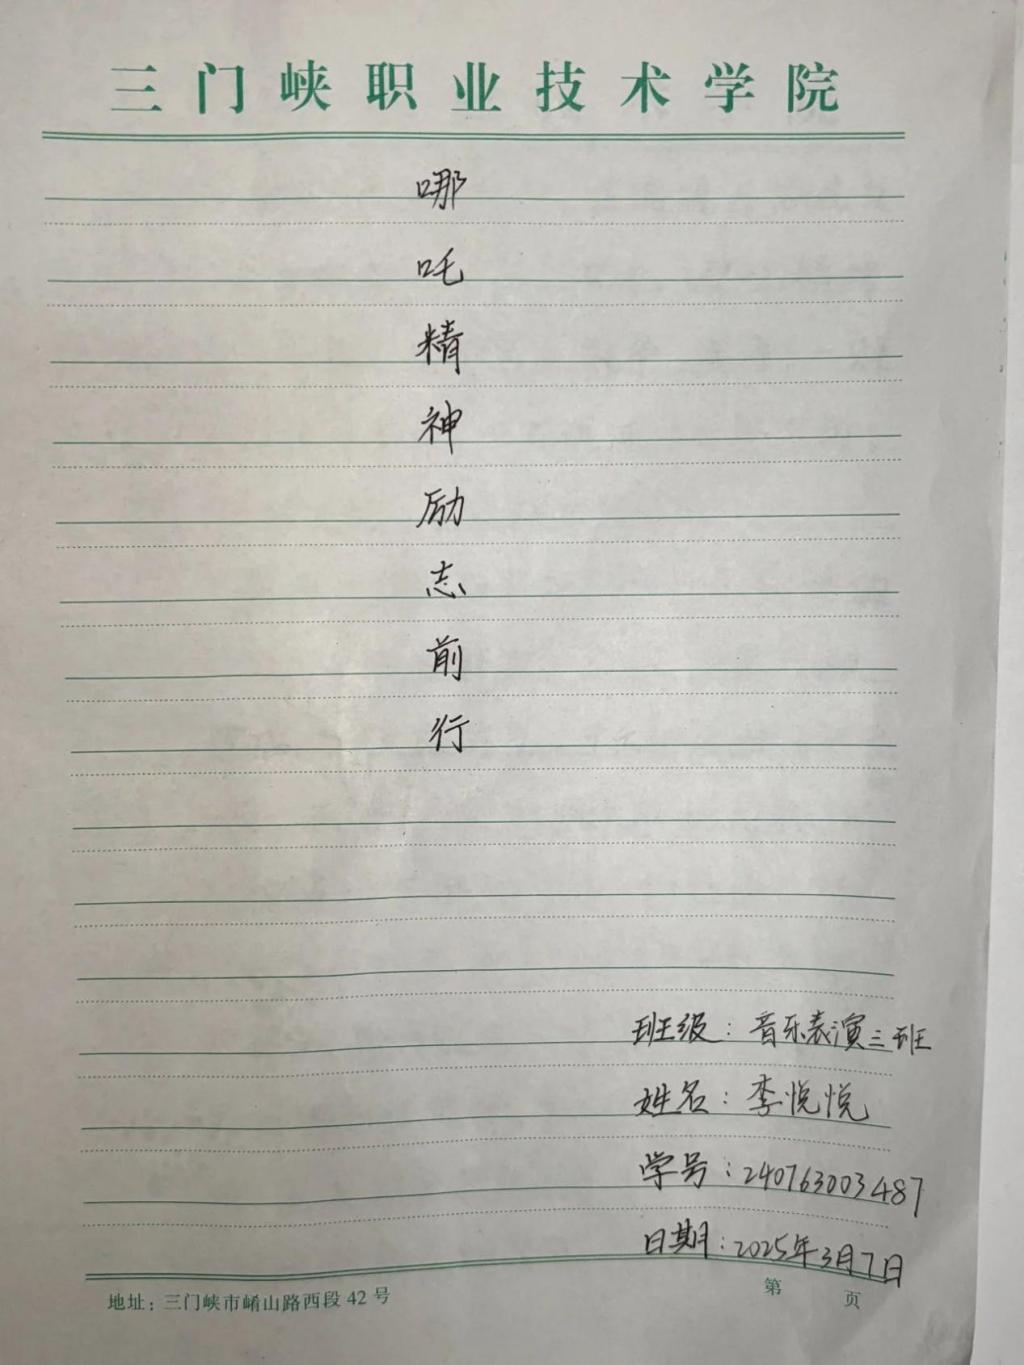 三门峡职业技术学院
哪
吒
精
神
励
志
前
行
班级：音乐表演三班
姓名：李悦悦
学号：240763003487
日期：2025年3月7日
地址：三门峡市崤山路西段 42 号
第 页